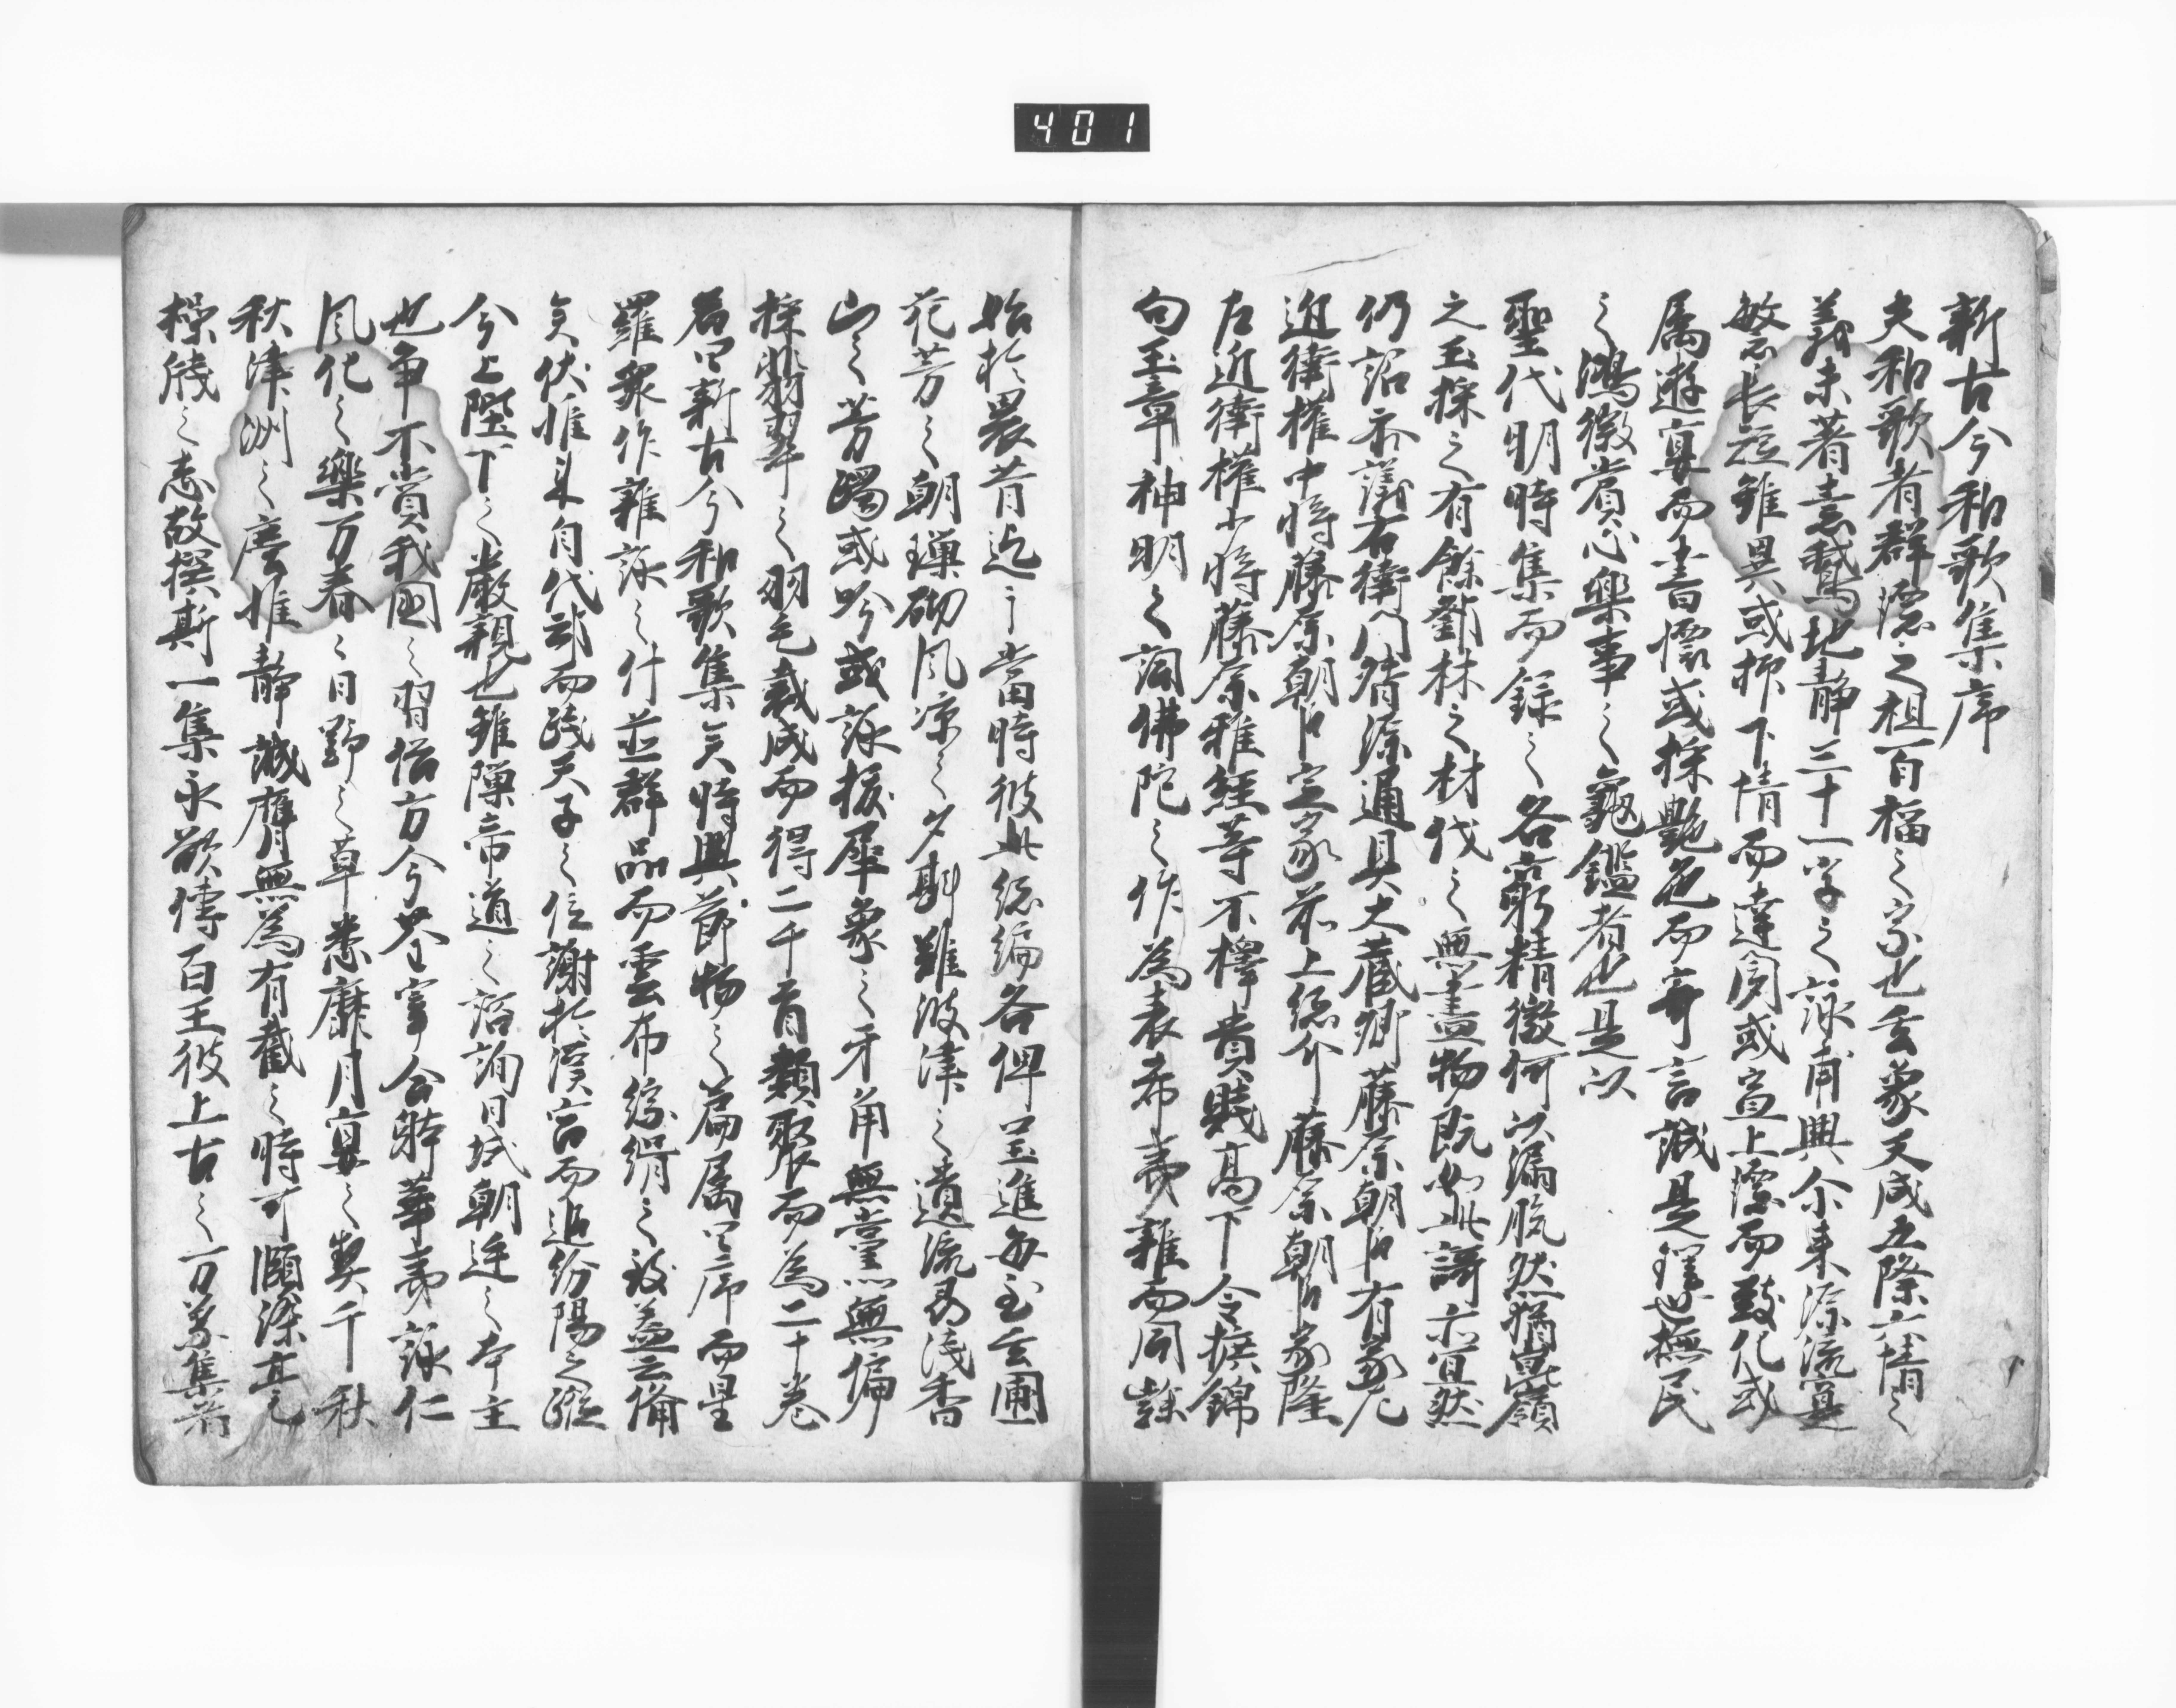 401
新古今和歌集序
夫和歌者群德之祖百福之宗也玄象天成五際六情之
義未著素鵞地静三十一字之詠甫興尒来源流寔
繁長短雖異或抒下情而達聞或宣上德而致化或
属遊宴而書懐或採艶色而寄言誠是理世撫民
之鴻徽賞心樂事之龜鑑者也是以
聖代明時集而録之各窮精微何以漏脱然猶崑嶺
之玉採之有餘鄧林之材伐之無盡物既如此謌亦宜然
仍詔参議右衛門督源通具大蔵卿藤原朝臣有家左
近衛權中将藤原朝臣定家前上総介藤原朝臣家隆
左近衛權少将藤原雅経等不擇貴賤高下令摭錦
句玉章神明之詞佛陀之作為表希夷雜而同隷
始於曩昔迄于當時彼此総編各俾呈進毎至玄圃
花芳之朝璅砌風凉之夕斟難波津之遺流尋淺香
山之芳躅或吟或詠抜犀象之牙角無黨無偏
採翡翠之羽毛裁成而得二千首類聚而為二十巻
名曰新古今和歌集矣時興節物之篇属四序而星
羅衆作雜詠之什並群品而雲布綜緝之致蓋云備
矣伏惟来自代邸而践天子之位謝於漢宮而追汾陽之蹤
今上陛下之厳親也雖隟帝道之諮詢日域朝廷之本主
也争不賞我國之習俗方今荃宰合躰華夷詠仁
風化之樂万春之日野之草悉靡月宴之契千秋
秋津洲之塵惟静誠膺無為有截之時可頤染毫
操牋之志故撰斯一集永欲傳百王彼上古之万葉集者